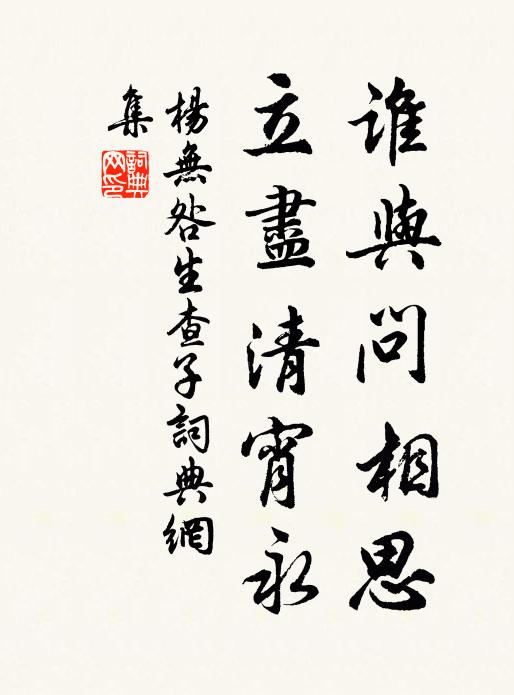 誰與問相思
立盡清宵永
楊無咎生查子詞典網
集
詞典網印